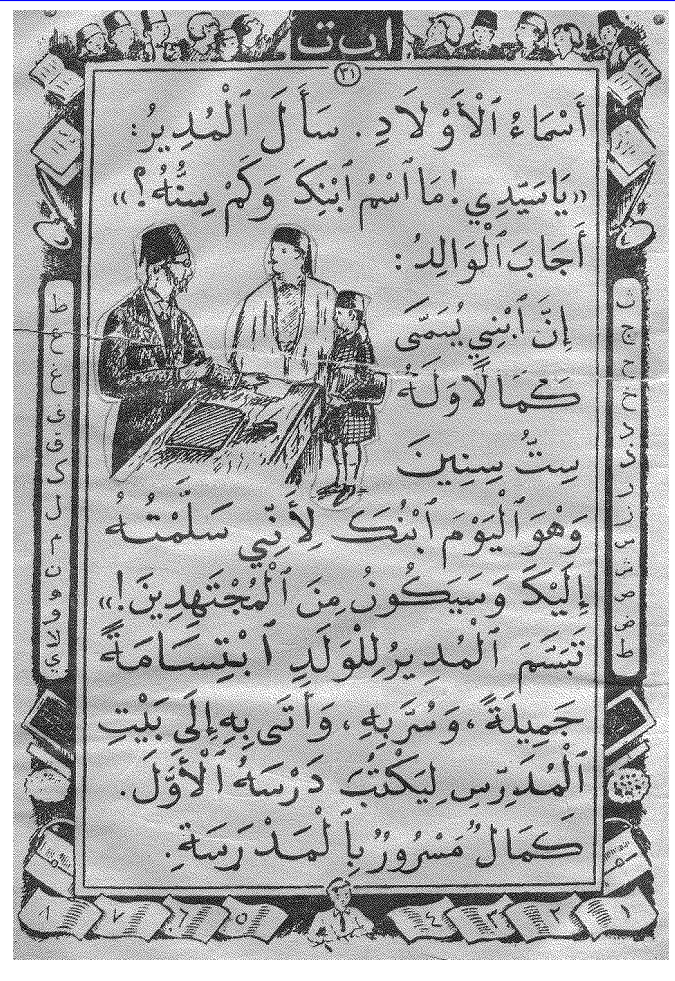 ا ب ت
٣١
أَسْمَاءُ ٱلْأَوْلَادِ. سَأَلَ ٱلْمُدِيرُ:
«يَاسَيِّدِي! مَا ٱسْمُ ٱبْنِكَ وَكَمْ سِنُّهُ؟»
أَجَابَ ٱلْوَالِدُ:
إِنَّ ٱبْنِي يُسَمَّى
كَمَالًا وَلَهُ
سِتُّ سِنِينَ
وَهْوَ ٱلْيَوْمَ ٱبْنُكَ لِأَنِّي سَلَّمْتُهُ
إِلَيْكَ وَسَيَكُونُ مِنَ ٱلْمُجْتَهِدِينَ!»
تَبَسَّمَ ٱلْمُدِيرُ لِلْوَلَدِ ٱبْتِسَامَةً
جَمِيلَةً، وَسُرَّ بِهِ، وَأَتَى بِهِ إِلَى بَيْتِ
ٱلْمُدَرِّسِ لِيَكْتُبَ دَرْسَهُ ٱلْأَوَّلَ.
كَمَالٌ مَسْرُورٌ بِٱلْمَدْرَسَةِ.
ث
ج
ح
خ
د
ذ
ر
ز
س
ش
ص
ض
ط
ظ
ع
غ
ف
ق
ك
ل
م
ن
ه
و
لا
ي
١ ٢ ٣ ٤ ٥ ٦ ٧ ٨